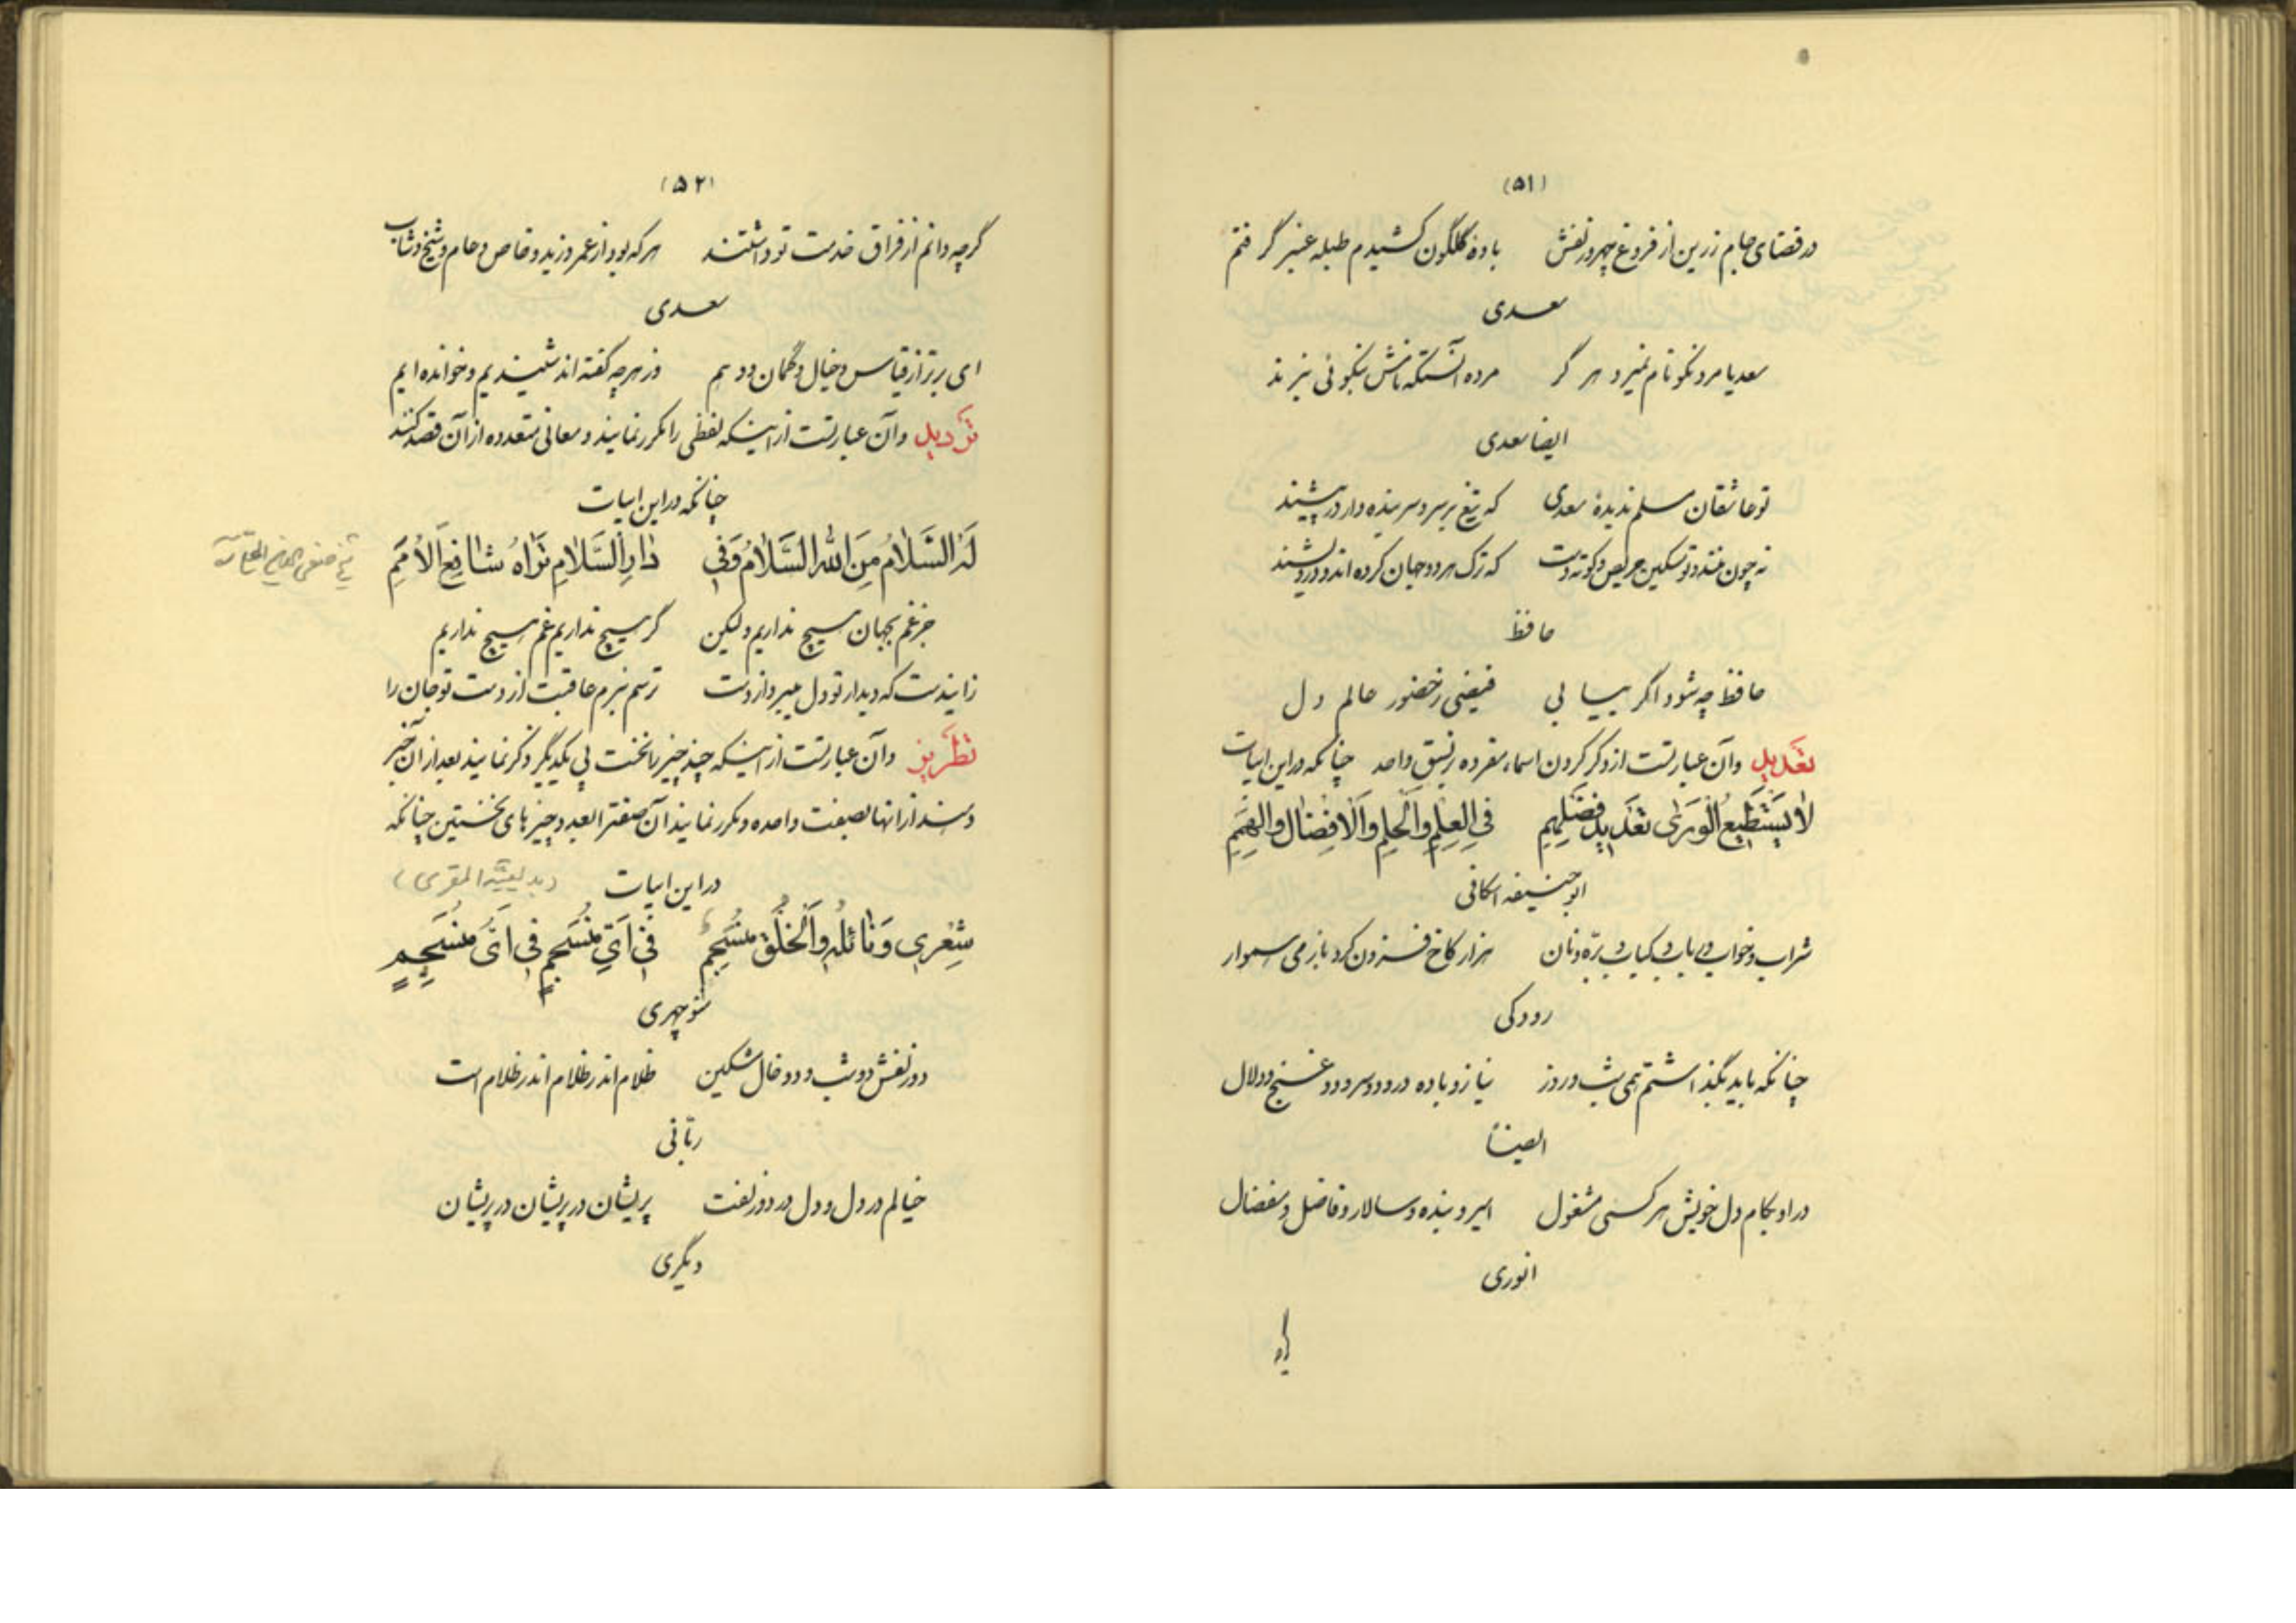 (۵۱)
در قضای جام زرین از فروغ چهر و زلفش باده گلگون کشیدم طبله عنبر گرفتم
سعدی
سعدیا مرد نکونام نمیرد هرگز مرده آنستکه نامش بنکوئی نبرند
ایضا سعدی
تو عاشقان مسلم ندیدهٔ سعدی که تیغ بر سر و سر بنده وار در پیشند
نه چون منند و تو مسکین حریص و کوته دست که ترک هر دو جهان کرده اند و درویشند
حافظ
حافظ چه شود اگر بیابی فیضی ز حضور عالم دل
تعدیل و آن عبارتست از ذکر کردن اسماء مفرده بر نسق واحد چنانکه در این ابیات
لا یَسْتَطیعُ الْوَرَی تَعْدیلَ فَضْلِهِمِ فِی الْعِلْمِ وَالْحِلْمِ وَالْاِفْضالِ وَالْهِمَمِ
ابو حنیفه اسکافی
شراب و خواب و رباب و کباب و بره و نان هزار کاخ فزون کرد با زمی هموار
رودکی
چنانکه باید بگذاشتم همی شب و روز بناز و باده و رود و سرود و غنج و دلال
ایضاً
در او بکام دل خویش هر کسی مشغول امیر و بنده و سالار و فاضل و مفضال
انوری
(۵۲)
گرچه دانم از فراق خدمت تو داشتند هر که بود از عمرو و زید و خاص و عام و شیخ و شاب
سعدی
ای برتر از قیاس و خیال و گمان و وهم وز هر چه گفته اند شنیدیم و خوانده ایم
تردید و آن عبارتست از اینکه لفظی را مکرر نمایند و معانی متعدده از آن قصد کنند
چنانکه در این ابیات
لَهُ السَّلامُ مِنَ اللهِ السَّلامُ وَفِی دارِ السَّلامِ تَراهُ شافِعَ الْاُمَمِ
جز غم بجهان هیچ نداریم ولیکن گر هیچ نداریم غم هیچ نداریم
زاینده ست که دیدار تو دل میبرد از دست ترسم نبرم عاقبت از دست تو جان را
تطریز و آن عبارتست از اینکه چند چیز را نخست پی یکدیگر ذکر نمایند بعد از آن خبر
دهند از آنها بصفت واحده و مکرر نمایند آن صفت را بعدد چیزهای نخستین چنانکه
در این ابیات (بدیعیة المقری)
شِعْری وَنائِلُهُ وَالْخَلْقُ مُنْسَجِمٌ فی اَیِّ مُنْسَجِمٍ فی اَیِّ مُنْسَجِمٍ
منوچهری
دو زلفش دو شب و دو خال مشکین ظلام اندر ظلام اندر ظلام است
ربانی
خیالم در دل و دل در دو زلفت پریشان در پریشان در پریشان
دیگری